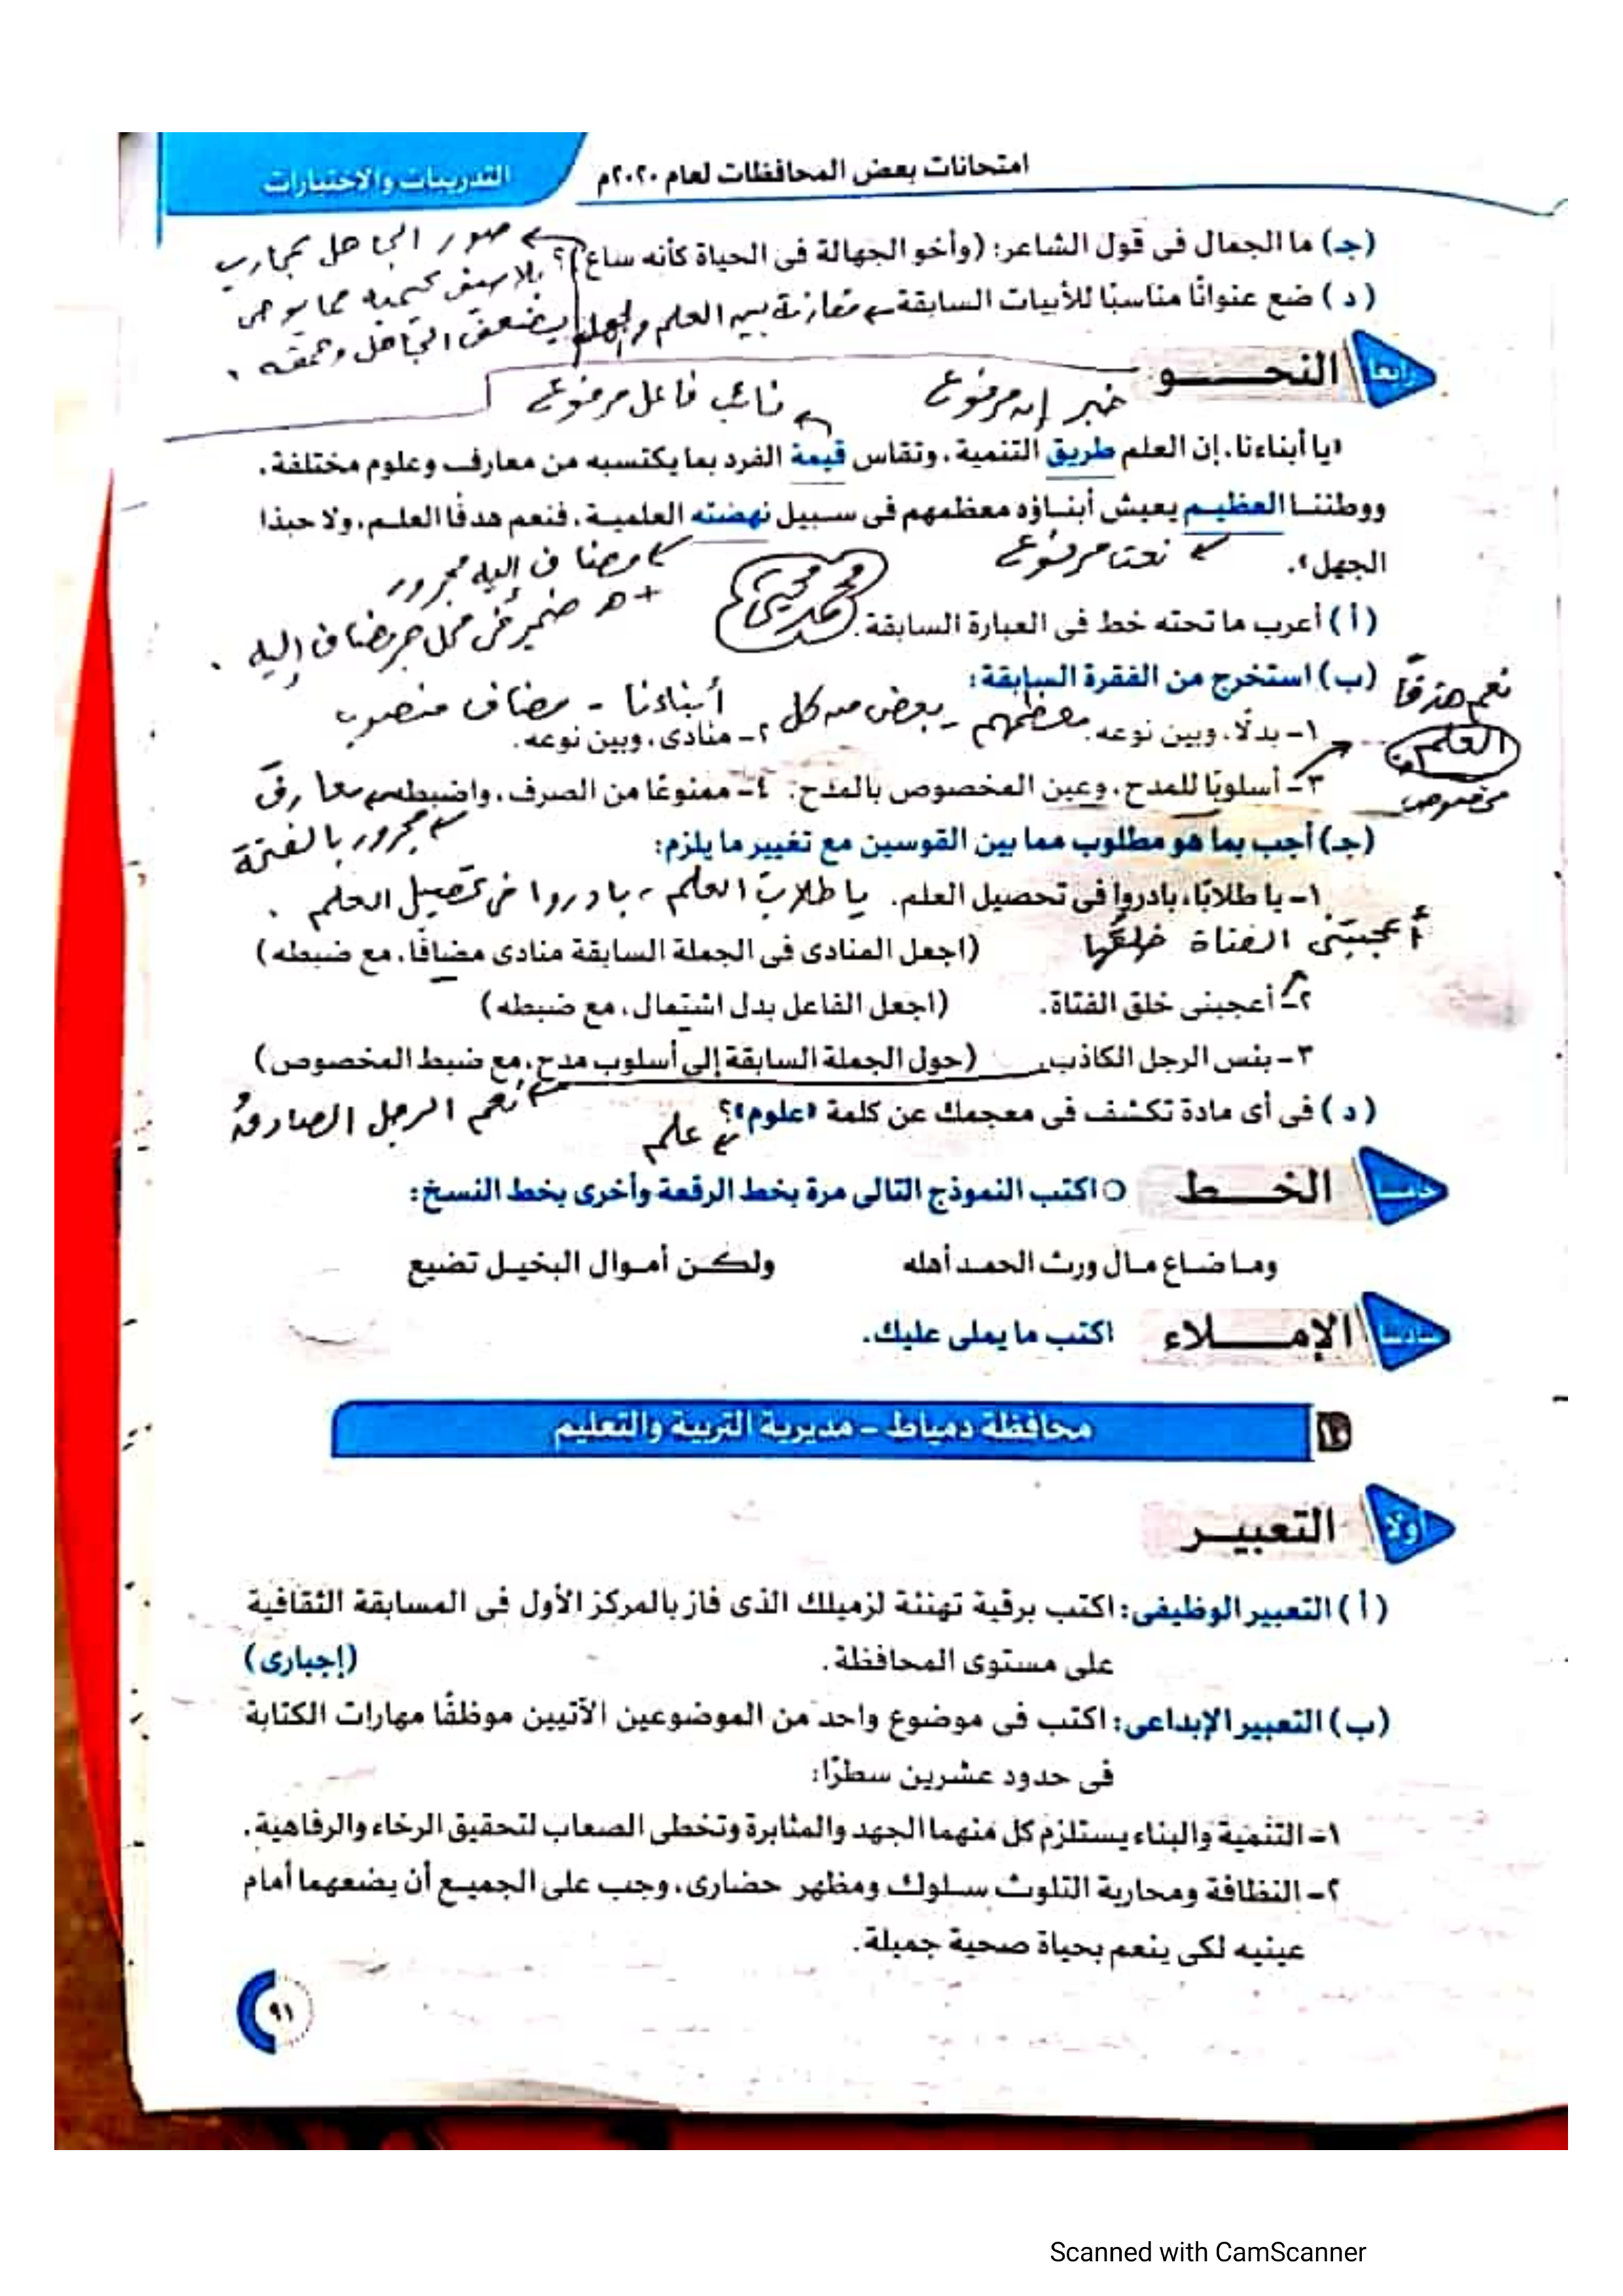 امتحانات بعض المحافظات لعام ٢٠٢٠م
التدريبات والاختبارات
(جـ) ما الجمال فى قول الشاعر: (وأخو الجهالة فى الحياة كأنه ساع)؟
صور الجاهل بمحارب
بلا سيف يحميه مما يوحى
بضعف الجاهل وحمقه.
(د) ضع عنوانًا مناسبًا للأبيات السابقة. مقارنة بين العلم والجهل
رابعا النحـــو
خبر إن مرفوع
نائب فاعل مرفوع
«يا أبناءنا، إن العلم طريق التنمية، وتقاس قيمة الفرد بما يكتسبه من معارف وعلوم مختلفة،
ووطننا العظيم يعيش أبناؤه معظمهم فى سبيل نهضته العلمية، فنعم هدفًا العلم، ولا حبذا
الجهل».
نعت مرفوع
مضاف إليه مجرور
+ ه ضمير فى محل جر مضاف إليه.
(أ) أعرب ما تحته خط فى العبارة السابقة.
(ب) استخرج من الفقرة السابقة:
١- بدلًا، وبين نوعه. معظمهم - بعض من كل
٢- منادى، وبين نوعه.
أبناءنا - مضاف منصوب
٣- أسلوبًا للمدح، وعين المخصوص بالمدح.
نعم هدفًا
العلم
مخصوص
٤- ممنوعًا من الصرف، واضبطه. معارفَ
مجرور بالفتحة
(جـ) أجب بما هو مطلوب مما بين القوسين مع تغيير ما يلزم:
١- يا طلابًا، بادروا فى تحصيل العلم. يا طلابَ العلم، بادروا فى تحصيل العلم.
(اجعل المنادى فى الجملة السابقة منادى مضافًا، مع ضبطه)
أعجبتنى الفتاة خلقُها
٢- أعجبنى خلق الفتاة. (اجعل الفاعل بدل اشتمال، مع ضبطه)
٣- بئس الرجل الكاذب. (حول الجملة السابقة إلى أسلوب مدح، مع ضبط المخصوص)
نعم الرجل الصادقُ
(د) فى أى مادة تكشف فى معجمك عن كلمة «علوم»؟
علم
خامسا الخـــط
اكتب النموذج التالى مرة بخط الرقعة وأخرى بخط النسخ:
وما ضاع مال ورث الحمد أهله ولكن أموال البخيل تضيع
سادسا الإمـــلاء
اكتب ما يملى عليك.
محافظة دمياط - مديرية التربية والتعليم
أولا التعبيــر
(أ) التعبير الوظيفى: اكتب برقية تهنئة لزميلك الذى فاز بالمركز الأول فى المسابقة الثقافية
على مستوى المحافظة. (إجبارى)
(ب) التعبير الإبداعى: اكتب فى موضوع واحد من الموضوعين الآتيين موظفًا مهارات الكتابة
فى حدود عشرين سطرًا:
١- التنمية والبناء يستلزم كل منهما الجهد والمثابرة وتخطى الصعاب لتحقيق الرخاء والرفاهية.
٢- النظافة ومحاربة التلوث سلوك ومظهر حضارى، وجب على الجميع أن يضعهما أمام
عينيه لكى ينعم بحياة صحية جميلة.
٩١
Scanned with CamScanner